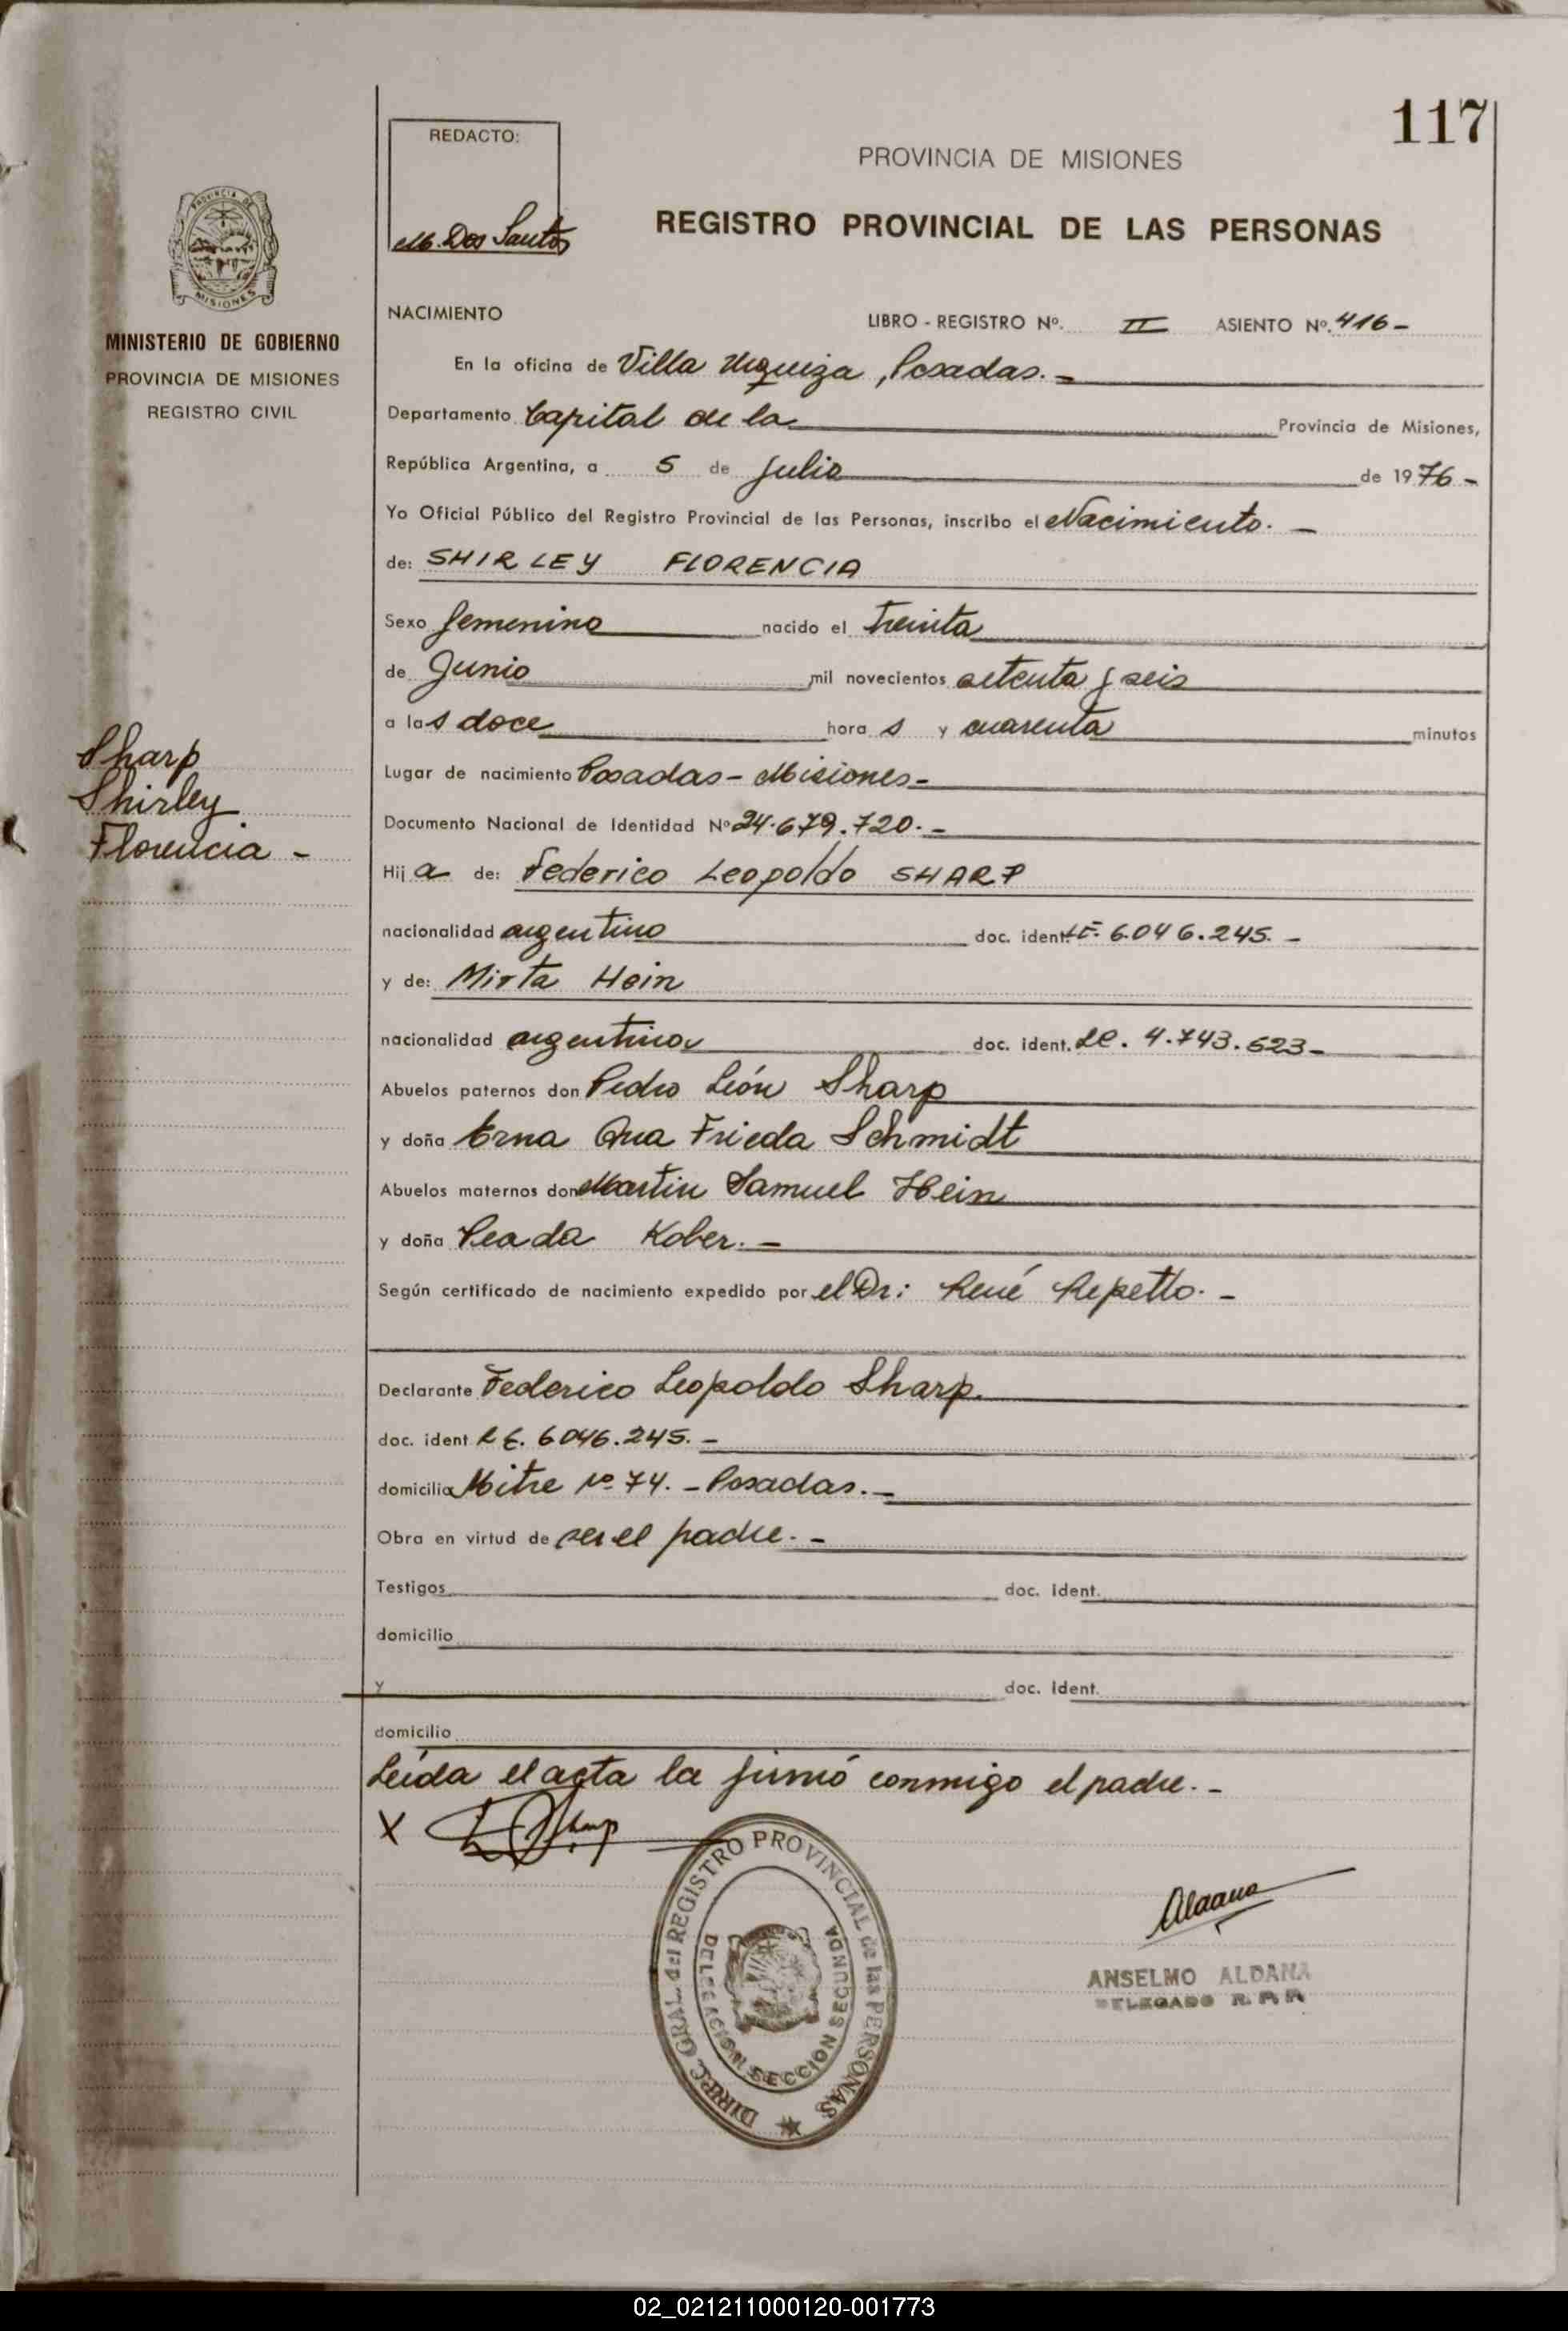 117
REDACTO:
M. Dos Santos
PROVINCIA DE MISIONES
REGISTRO PROVINCIAL DE LAS PERSONAS
PROVINCIA DE
MISIONES
MINISTERIO DE GOBIERNO
PROVINCIA DE MISIONES
REGISTRO CIVIL
NACIMIENTO LIBRO - REGISTRO Nº. II ASIENTO Nº. 416 -
En la oficina de Villa Urquiza, Posadas. -
Departamento Capital de la Provincia de Misiones,
República Argentina, a 5 de Julio de 1976 -
Yo Oficial Público del Registro Provincial de las Personas, inscribo el Nacimiento. -
de: SHIRLEY FLORENCIA
Sexo femenino nacido el treinta
de Junio mil novecientos setenta y seis
a las doce horas y cuarenta minutos
Sharp
Shirley
Florencia -
Lugar de nacimiento Posadas - Misiones -
Documento Nacional de Identidad Nº 24.679.720. -
Hija de: Federico Leopoldo SHARP
nacionalidad argentino doc. ident. LE. 6.046.245. -
y de: Mirta Hein
nacionalidad argentina doc. ident. LC. 4.743.523 -
Abuelos paternos don Pedro León Sharp
y doña Erna Ana Frieda Schmidt
Abuelos maternos don Martin Samuel Hein
y doña Kober. -
Según certificado de nacimiento expedido por el Dr: René Repetto. -
Declarante Federico Leopoldo Sharp.
doc. ident LE. 6046.245. -
domicilio Mitre Nº 74. - Posadas. -
Obra en virtud de ser el padre. -
Testigos doc. ident.
domicilio
y doc. ident.
domicilio
Leída el acta la firmó conmigo el padre. -
X Sharp
DIREC. GRAL. del REGISTRO PROVINCIAL de las PERSONAS
DELEGACION SECCION SEGUNDA
Aldana
ANSELMO ALDANA
DELEGADO R. P. P.
02_021211000120-001773